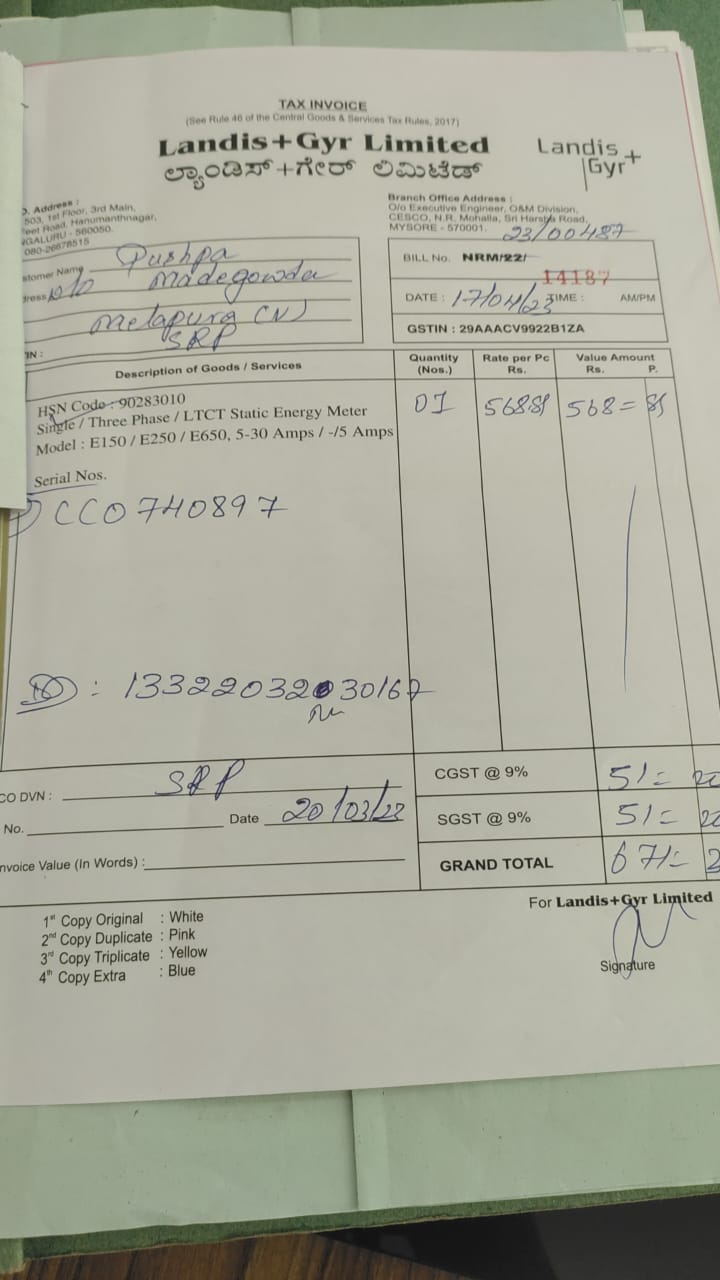 TAX INVOICE
(See Rule 46 of the Central Goods & Services Tax Rules, 2017)
Landis+Gyr Limited
ಲ್ಯಾಂಡಿಸ್+ಗೇರ್ ಲಿಮಿಟೆಡ್
Landis+
Gyr
Address :
503, 1st Floor, 3rd Main,
eet Road, Hanumanthnagar,
NGALURU - 560050.
080-26678515
Branch Office Address :
O/o Executive Engineer, O&M Division,
CESCO, N.R. Mohalla, Sri Harsha Road,
MYSORE - 570001.
23/00487
stomer Name Pushpa
ress D/o Madegowda
Melapura (V)
SRP
IN :
BILL No. NRM/22/
14187
DATE : 17/04/23 TIME : AM/PM
GSTIN : 29AAACV9922B1ZA
Description of Goods / Services
Quantity (Nos.)
Rate per Pc Rs.
Value Amount Rs. P.
HSN Code : 90283010
Single / Three Phase / LTCT Static Energy Meter
Model : E150 / E250 / E650, 5-30 Amps / -/5 Amps
01 568.81 568= 81
Serial Nos.
CCO740897
: 13322032030167
CO DVN : SRP
No. Date 20/03/23
nvoice Value (In Words) :
CGST @ 9% 51= 20
SGST @ 9% 51= 20
GRAND TOTAL 671= 2
1st Copy Original : White
2nd Copy Duplicate : Pink
3rd Copy Triplicate : Yellow
4th Copy Extra : Blue
For Landis+Gyr Limited
Signature